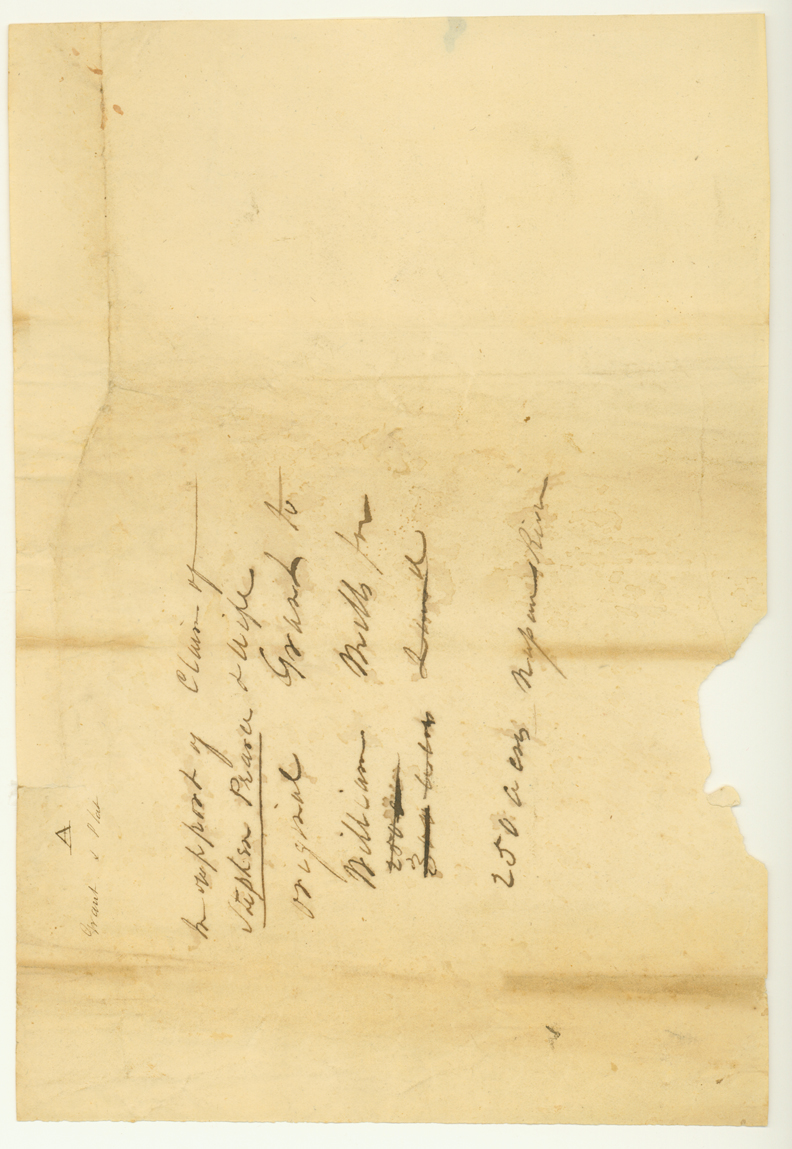 A
Grant & Plat
In support of Claim of
Stephen Pearce & Wife
original Grant to
William Mills for
250 acres Nassau River